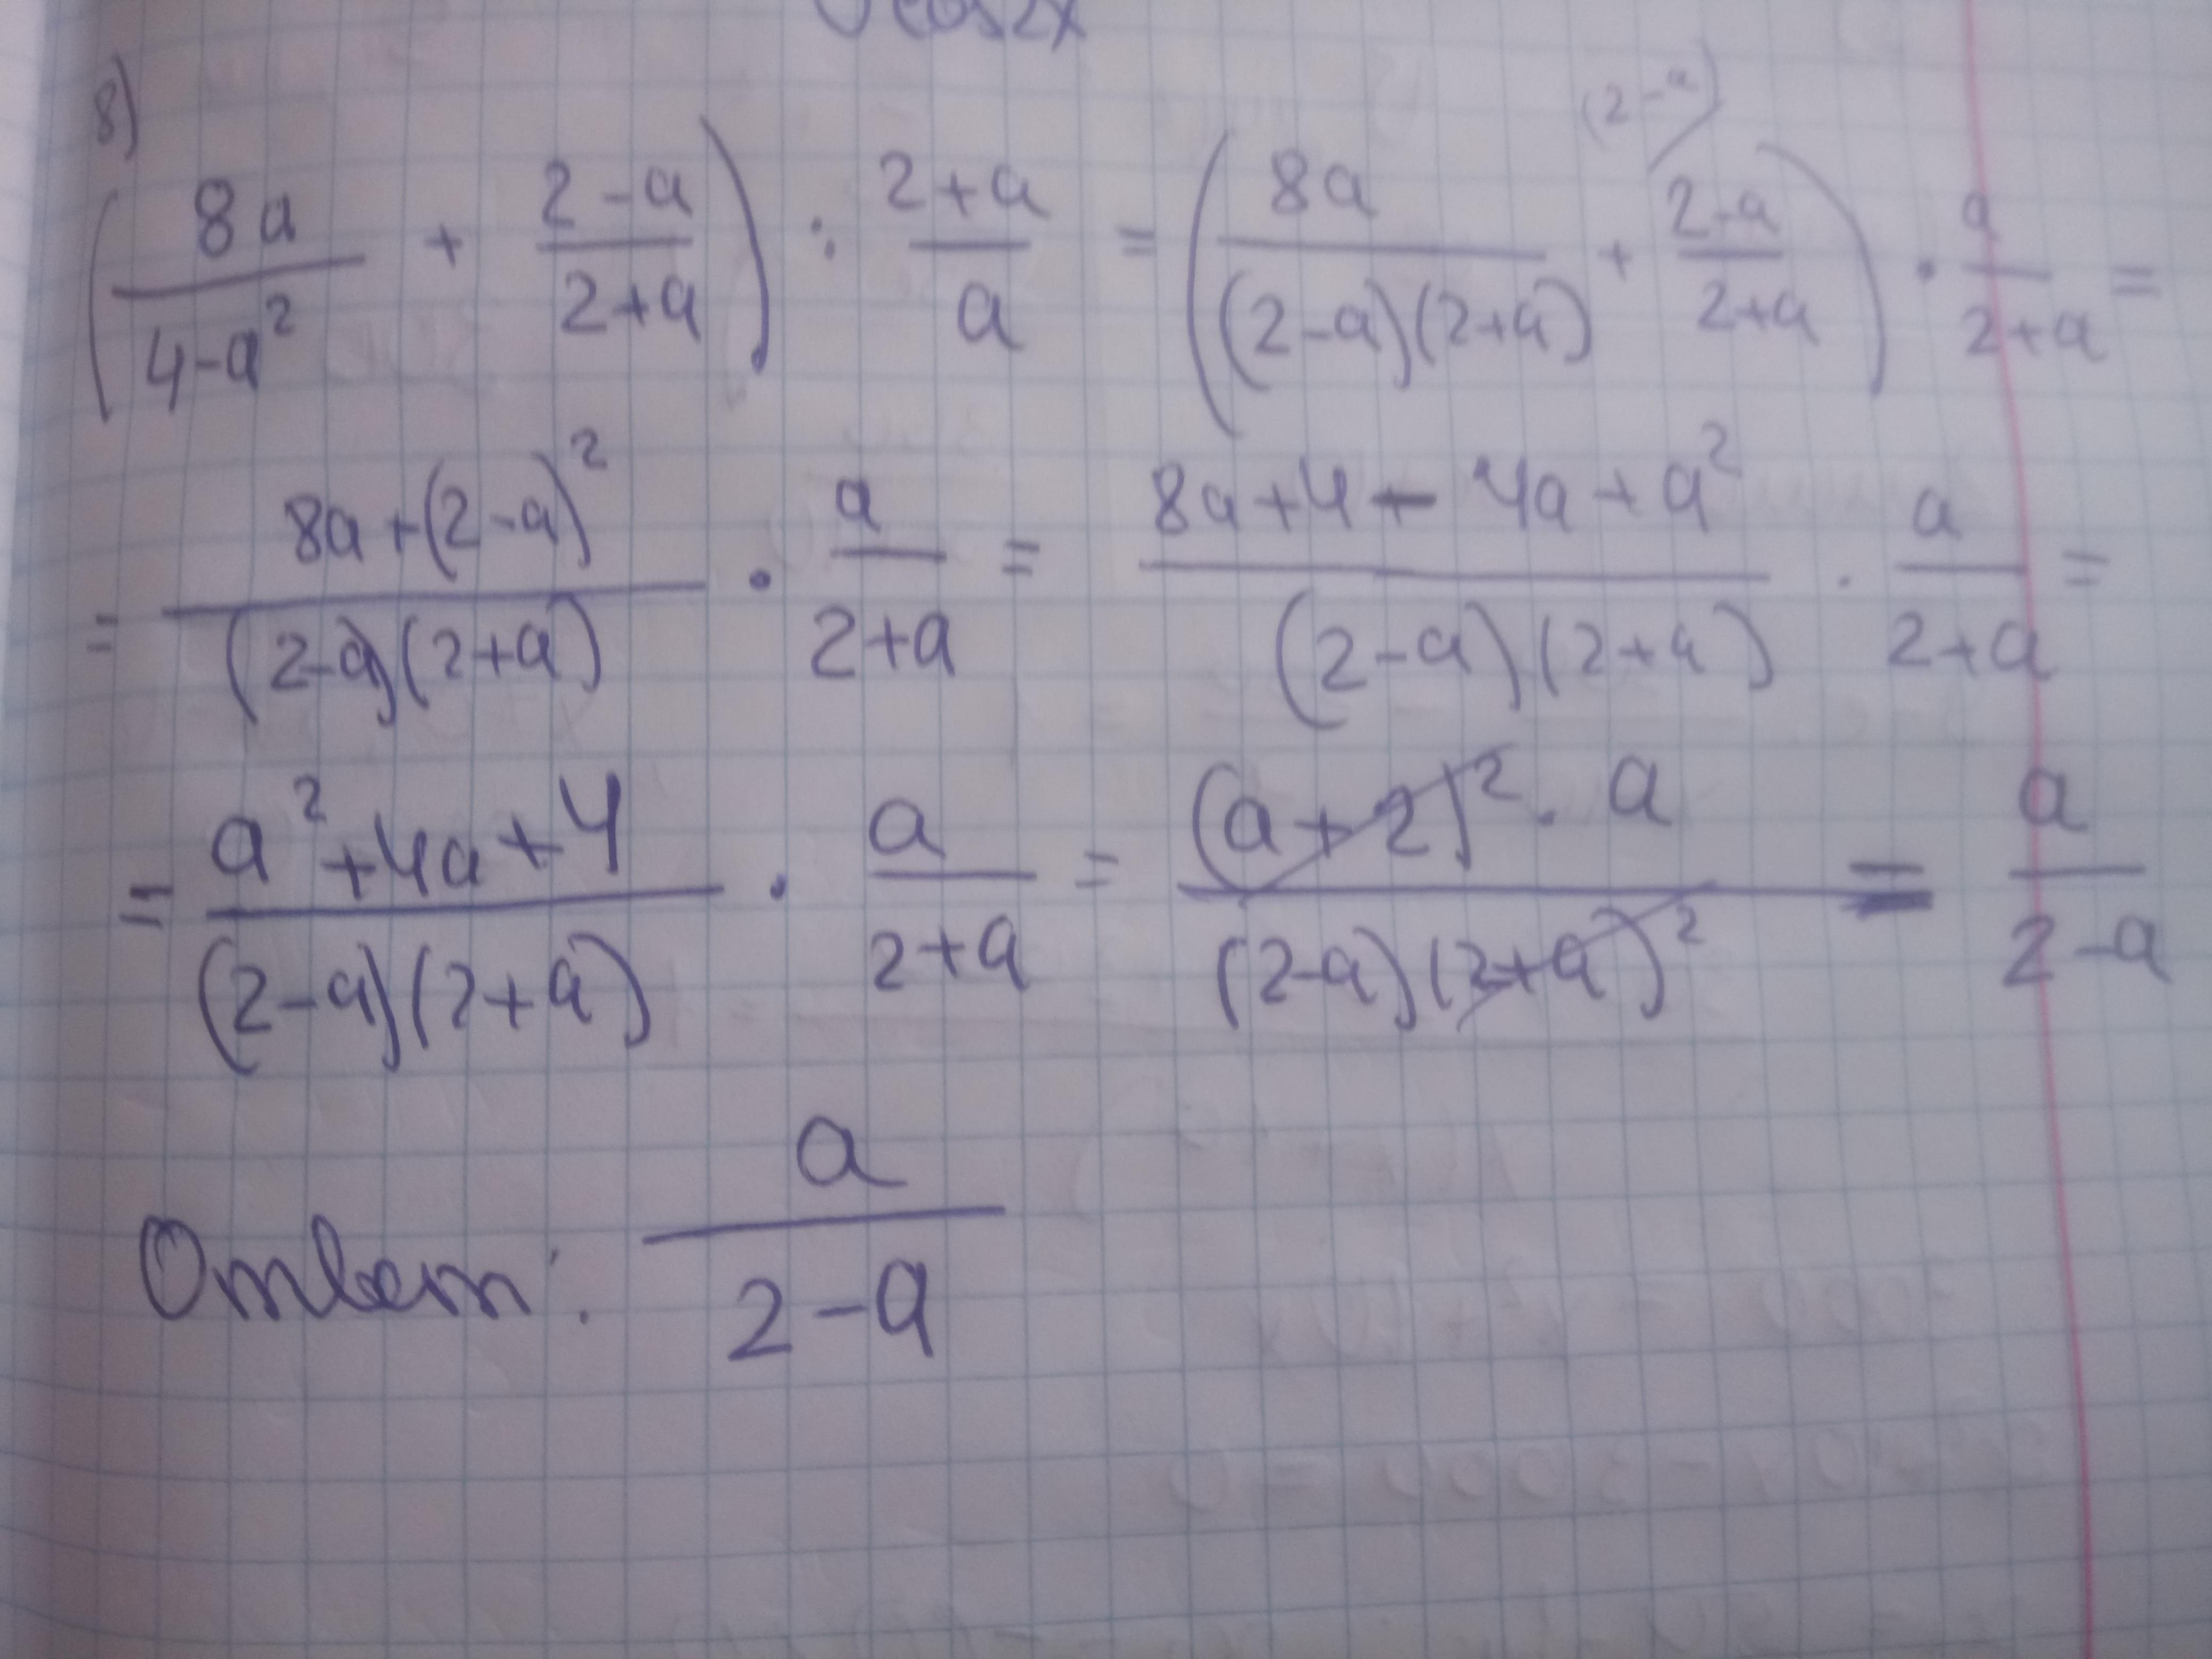 cos2x
8)
(2-a)
(8a/(4-a²) + (2-a)/(2+a)) : (2+a)/a = (8a/((2-a)(2+a)) + (2-a)/(2+a)) · a/(2+a) =
= (8a+(2-a)²)/((2-a)(2+a)) · a/(2+a) = (8a+4-4a+a²)/((2-a)(2+a)) · a/(2+a) =
= (a²+4a+4)/((2-a)(2+a)) · a/(2+a) = ((a+2)²·a)/((2-a)(2+a)²) = a/(2-a)
Ответ: a/(2-a)